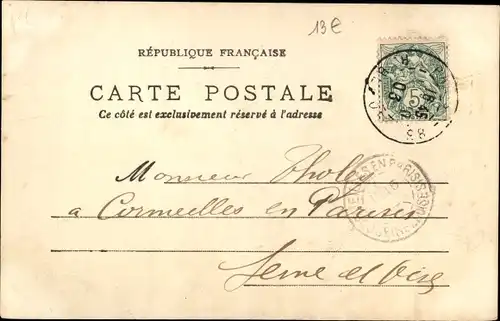 13€
RÉPUBLIQUE FRANÇAISE
CARTE POSTALE
Ce côté est exclusivement réservé à l'adresse
5
Monsieur Tholey
a Cormeilles en Parisis
Seine et Oise